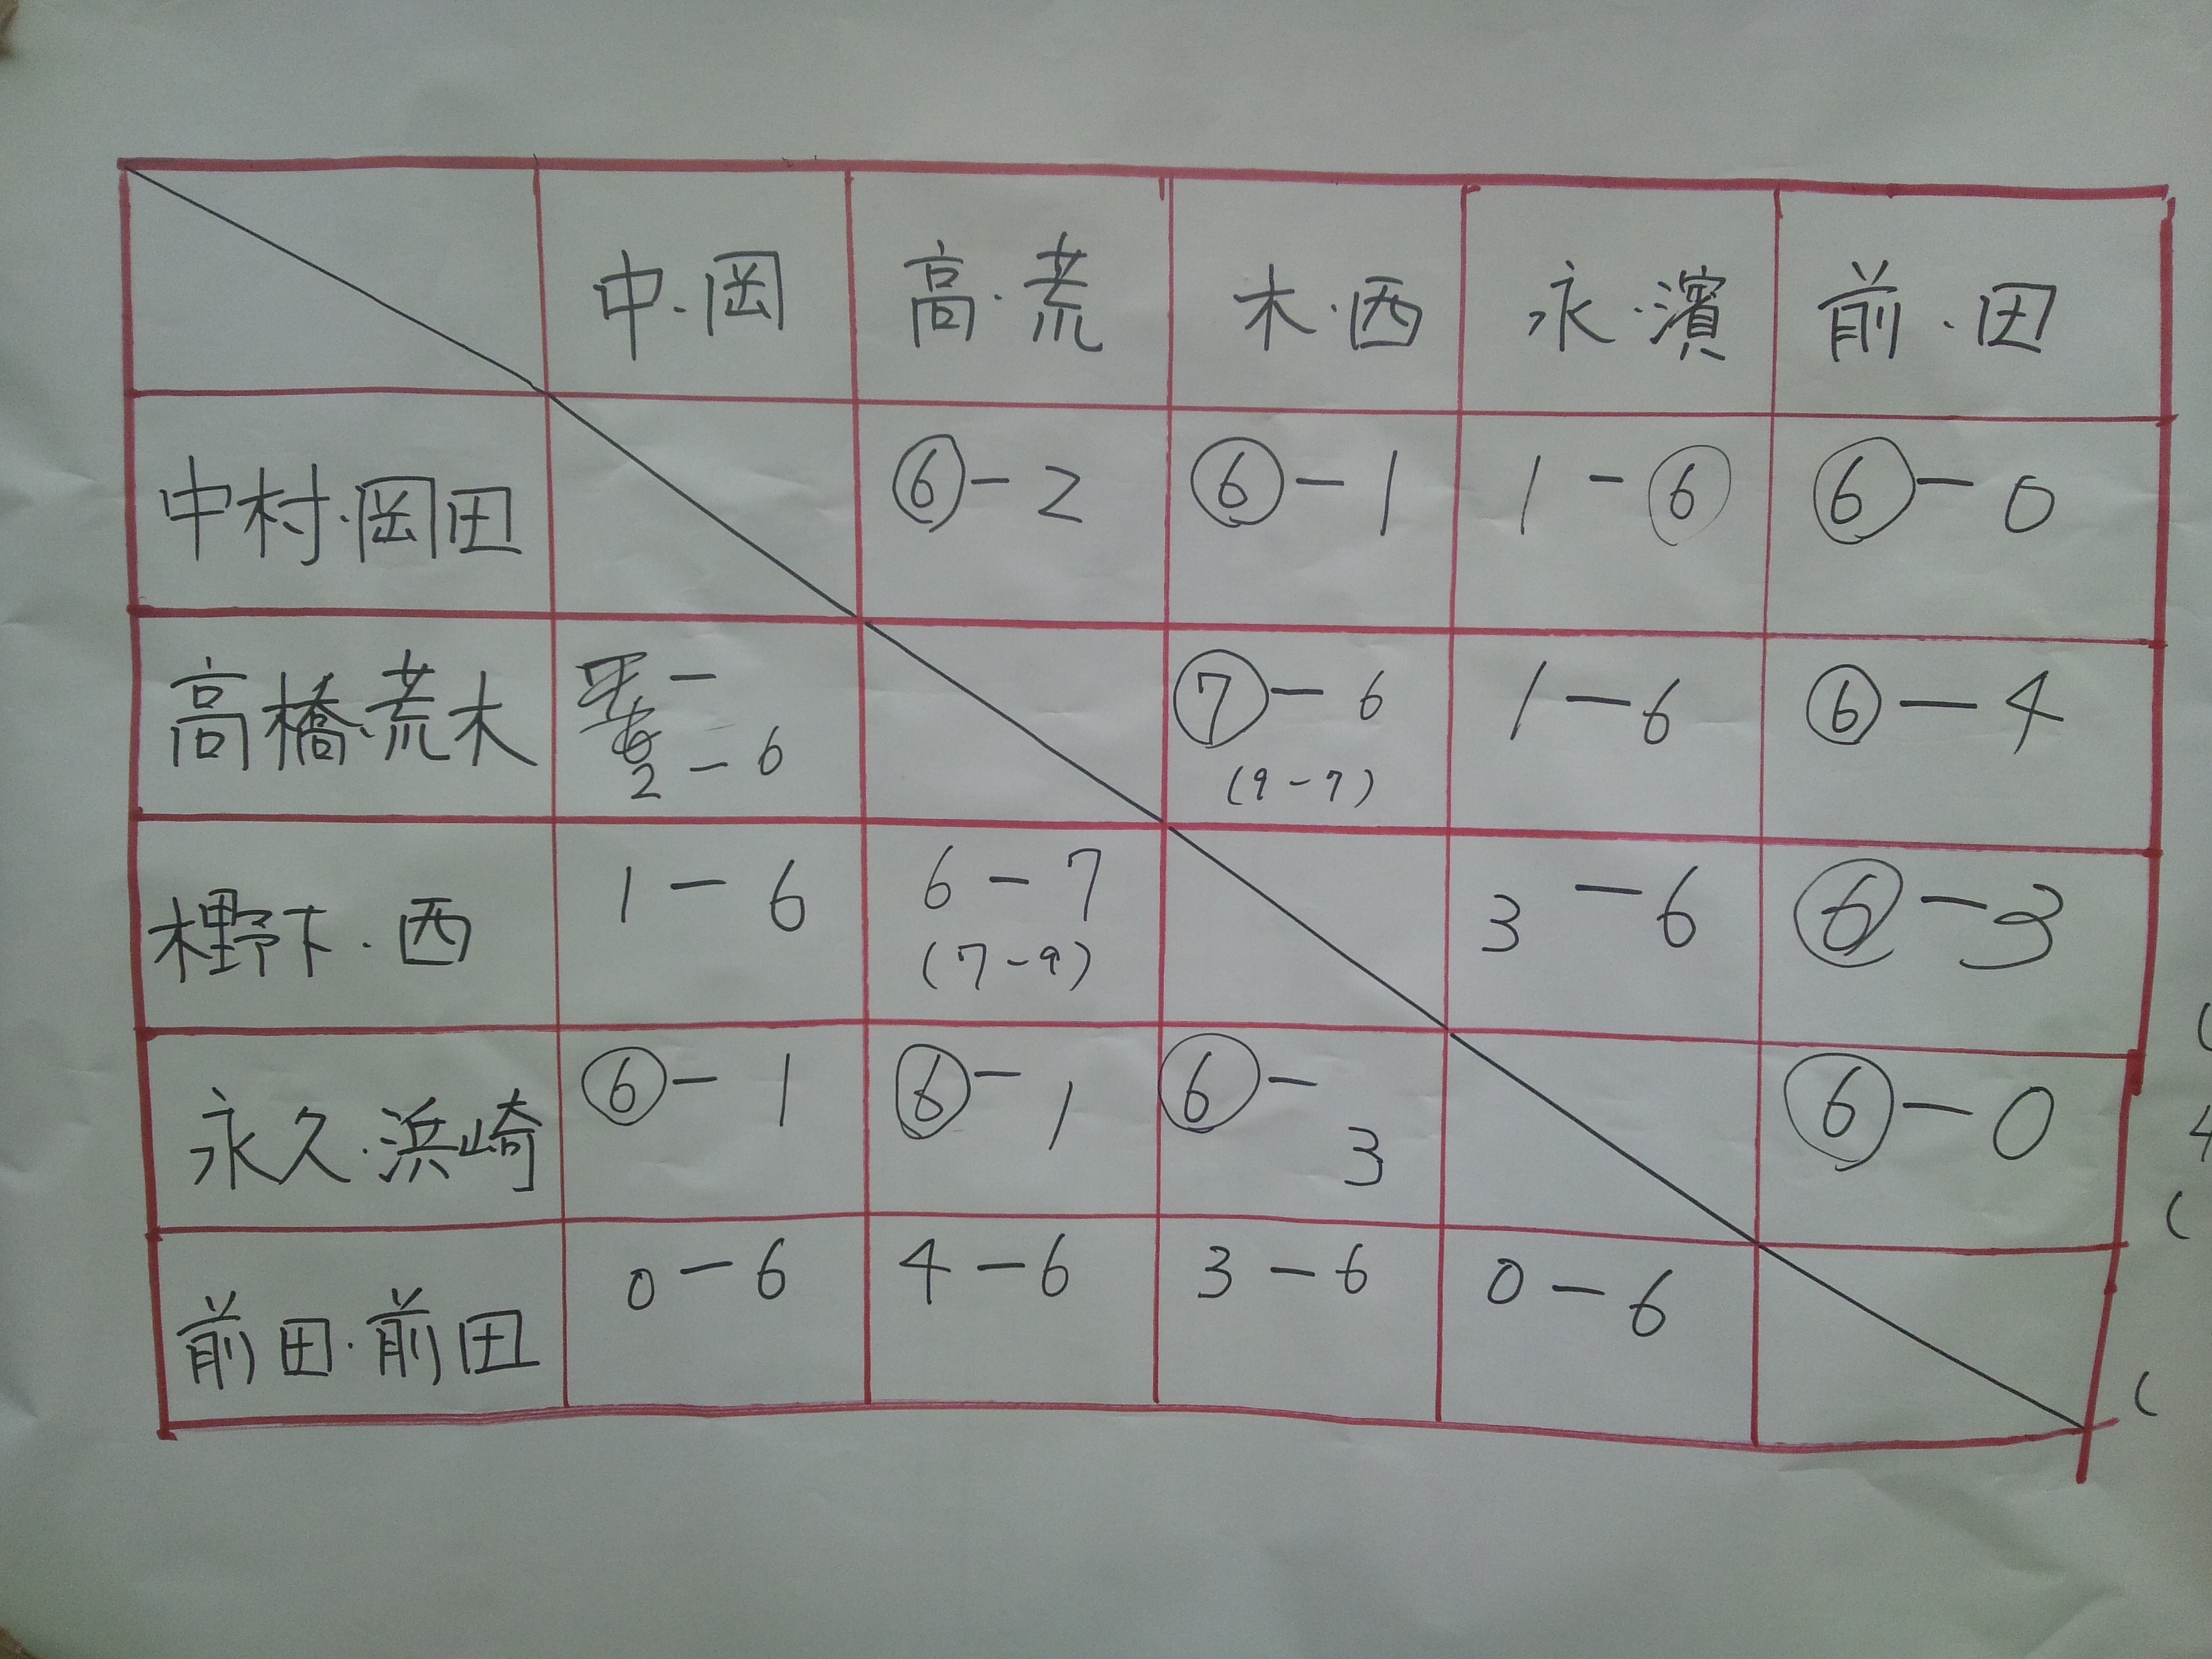 中・岡 高・荒 木・西 永・濱 前・田
中村・岡田 ⑥-2 ⑥-1 1-⑥ ⑥-0
高橋・荒木 2-6 ⑦-6 1-6 ⑥-4
(9-7)
木野下・西 1-6 6-7 3-6 ⑥-3
(7-9)
永久・浜崎 ⑥-1 ⑥-1 ⑥-3 ⑥-0
前田・前田 0-6 4-6 3-6 0-6